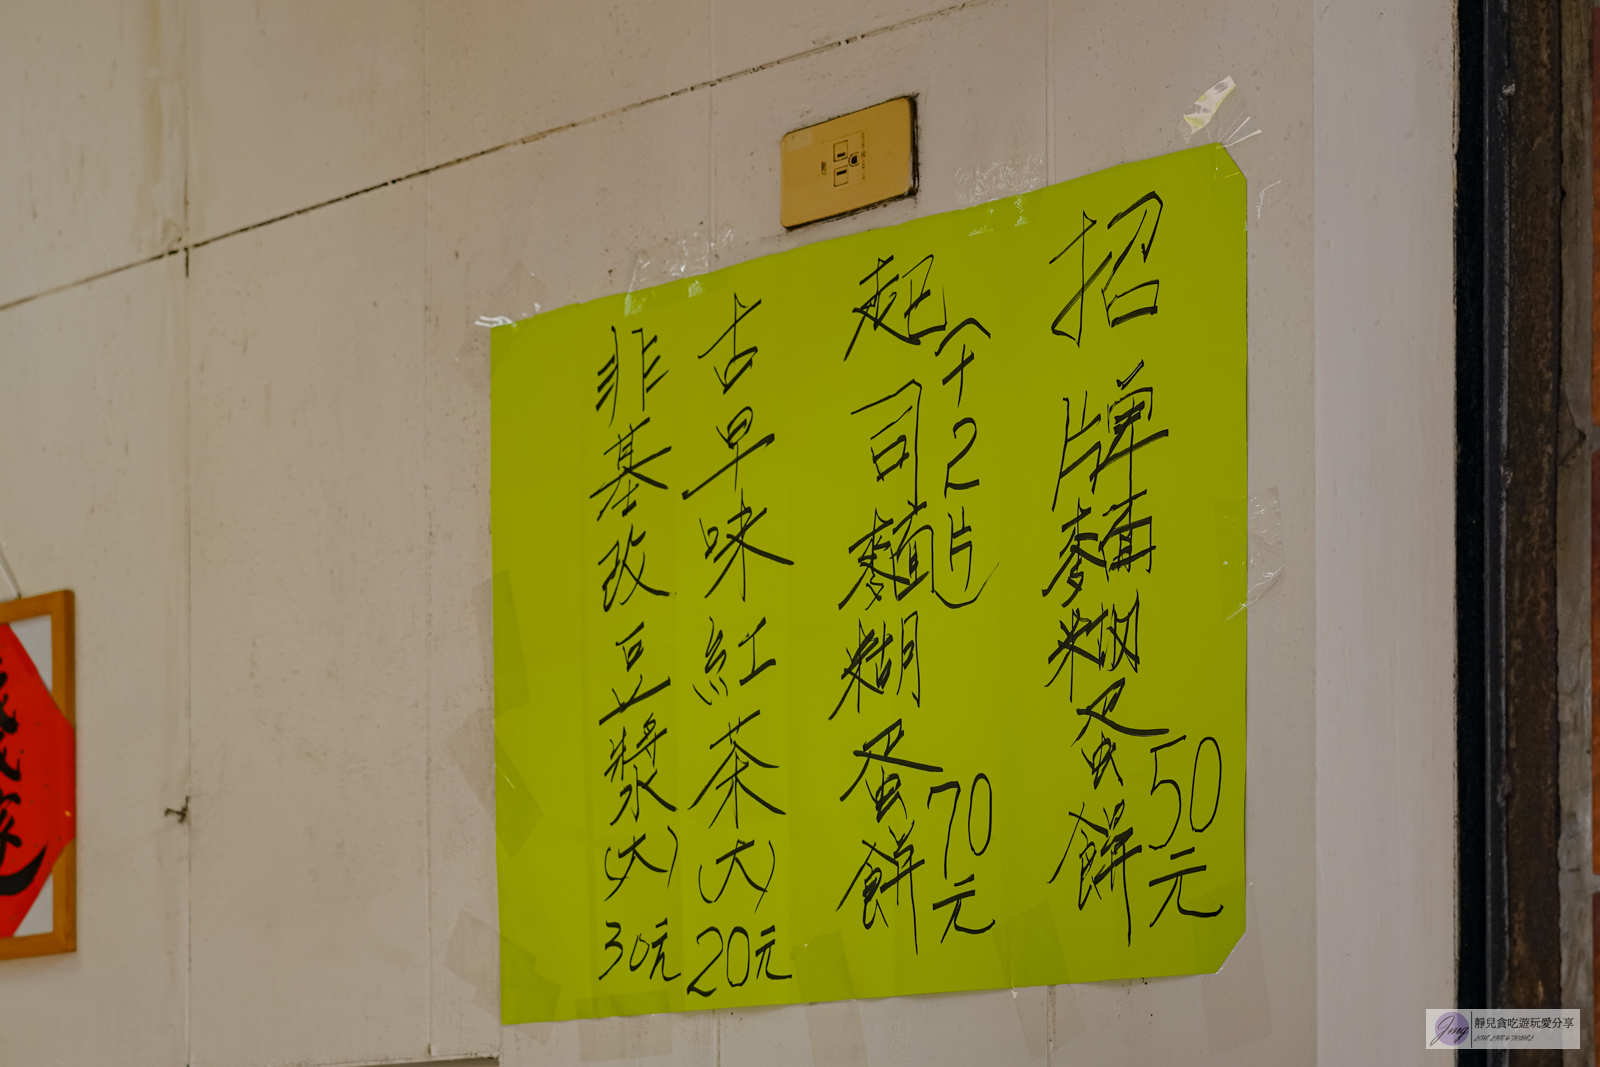 招牌麵糊蛋餅50元
起司麵糊蛋餅70元
(+2片)
古早味紅茶(大)20元
非基改豆漿(大)30元
靜兒貪吃遊玩愛分享
Jing